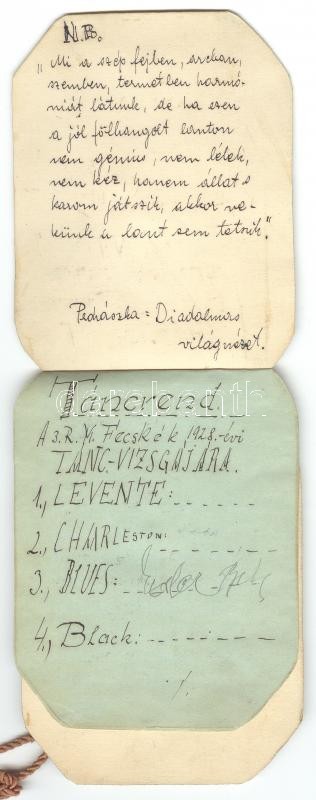 N.B.
"Mi a szép fejben, arcban,
szemben, termetben harmó-
niát látunk, de ha ezen
a jól fölhangolt lanton
nem géniusz, nem lélek,
nem kéz, hanem állati
karom játszik, akkor ne-
künk a lant sem tetszik."
Pedrászka: Diadalmas
világnézet.
Táncrend
A 3. R. M. Fecskék 1928.-évi
TÁNC-VIZSGÁJÁRA.
1., LEVENTE:
2., CHARLESTON:
3., BLUES:
4., Black:
·/.
darabanth